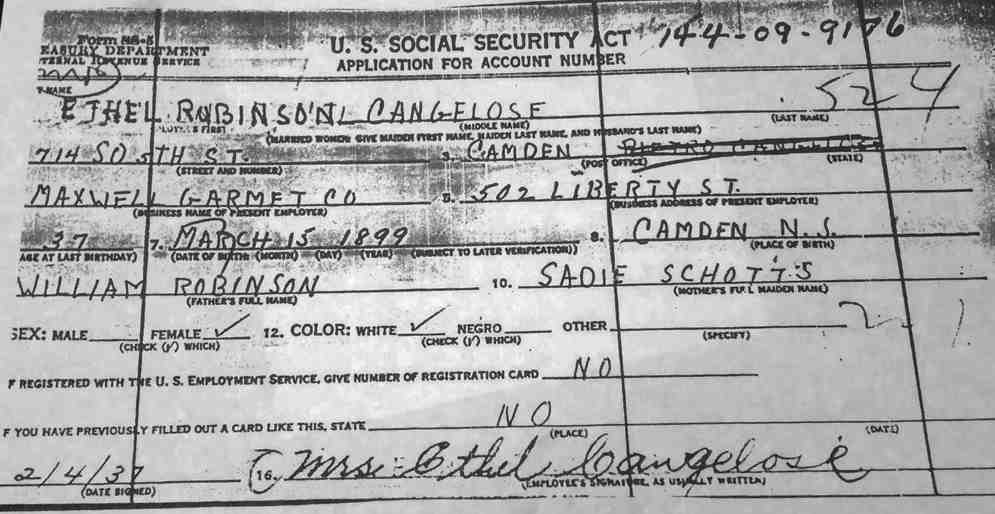 Form SS-5
U. S. SOCIAL SECURITY ACT 144-09-9176
EASURY DEPARTMENT
TERNAL REVENUE SERVICE
APPLICATION FOR ACCOUNT NUMBER
NAME
524
ETHEL ROBINSON CANGELOSE
(MIDDLE NAME) (LAST NAME)
(MARRIED WOMEN: GIVE MAIDEN FIRST NAME, MAIDEN LAST NAME, AND HUSBAND'S LAST NAME)
714 SO 5TH ST. 3. CAMDEN
(STREET AND NUMBER) (POST OFFICE) (STATE)
MAXWELL GARMET CO 5. 502 LIBERTY ST.
(BUSINESS NAME OF PRESENT EMPLOYER) (BUSINESS ADDRESS OF PRESENT EMPLOYER)
37 7. MARCH 15 1899 8. CAMDEN N.J.
AGE AT LAST BIRTHDAY) (DATE OF BIRTH: (MONTH) (DAY) (YEAR) (SUBJECT TO LATER VERIFICATION)) (PLACE OF BIRTH)
WILLIAM ROBINSON 10. SADIE SCHOTTS
(FATHER'S FULL NAME) (MOTHER'S FULL MAIDEN NAME)
SEX: MALE FEMALE ✓ 12. COLOR: WHITE ✓ NEGRO OTHER
(CHECK (✓) WHICH) (CHECK (✓) WHICH) (SPECIFY)
F REGISTERED WITH THE U. S. EMPLOYMENT SERVICE, GIVE NUMBER OF REGISTRATION CARD NO
F YOU HAVE PREVIOUSLY FILLED OUT A CARD LIKE THIS, STATE NO
(PLACE) (DATE)
2/4/37 16. Mrs. Ethel Cangelose
(DATE SIGNED) (EMPLOYEE'S SIGNATURE, AS USUALLY WRITTEN)